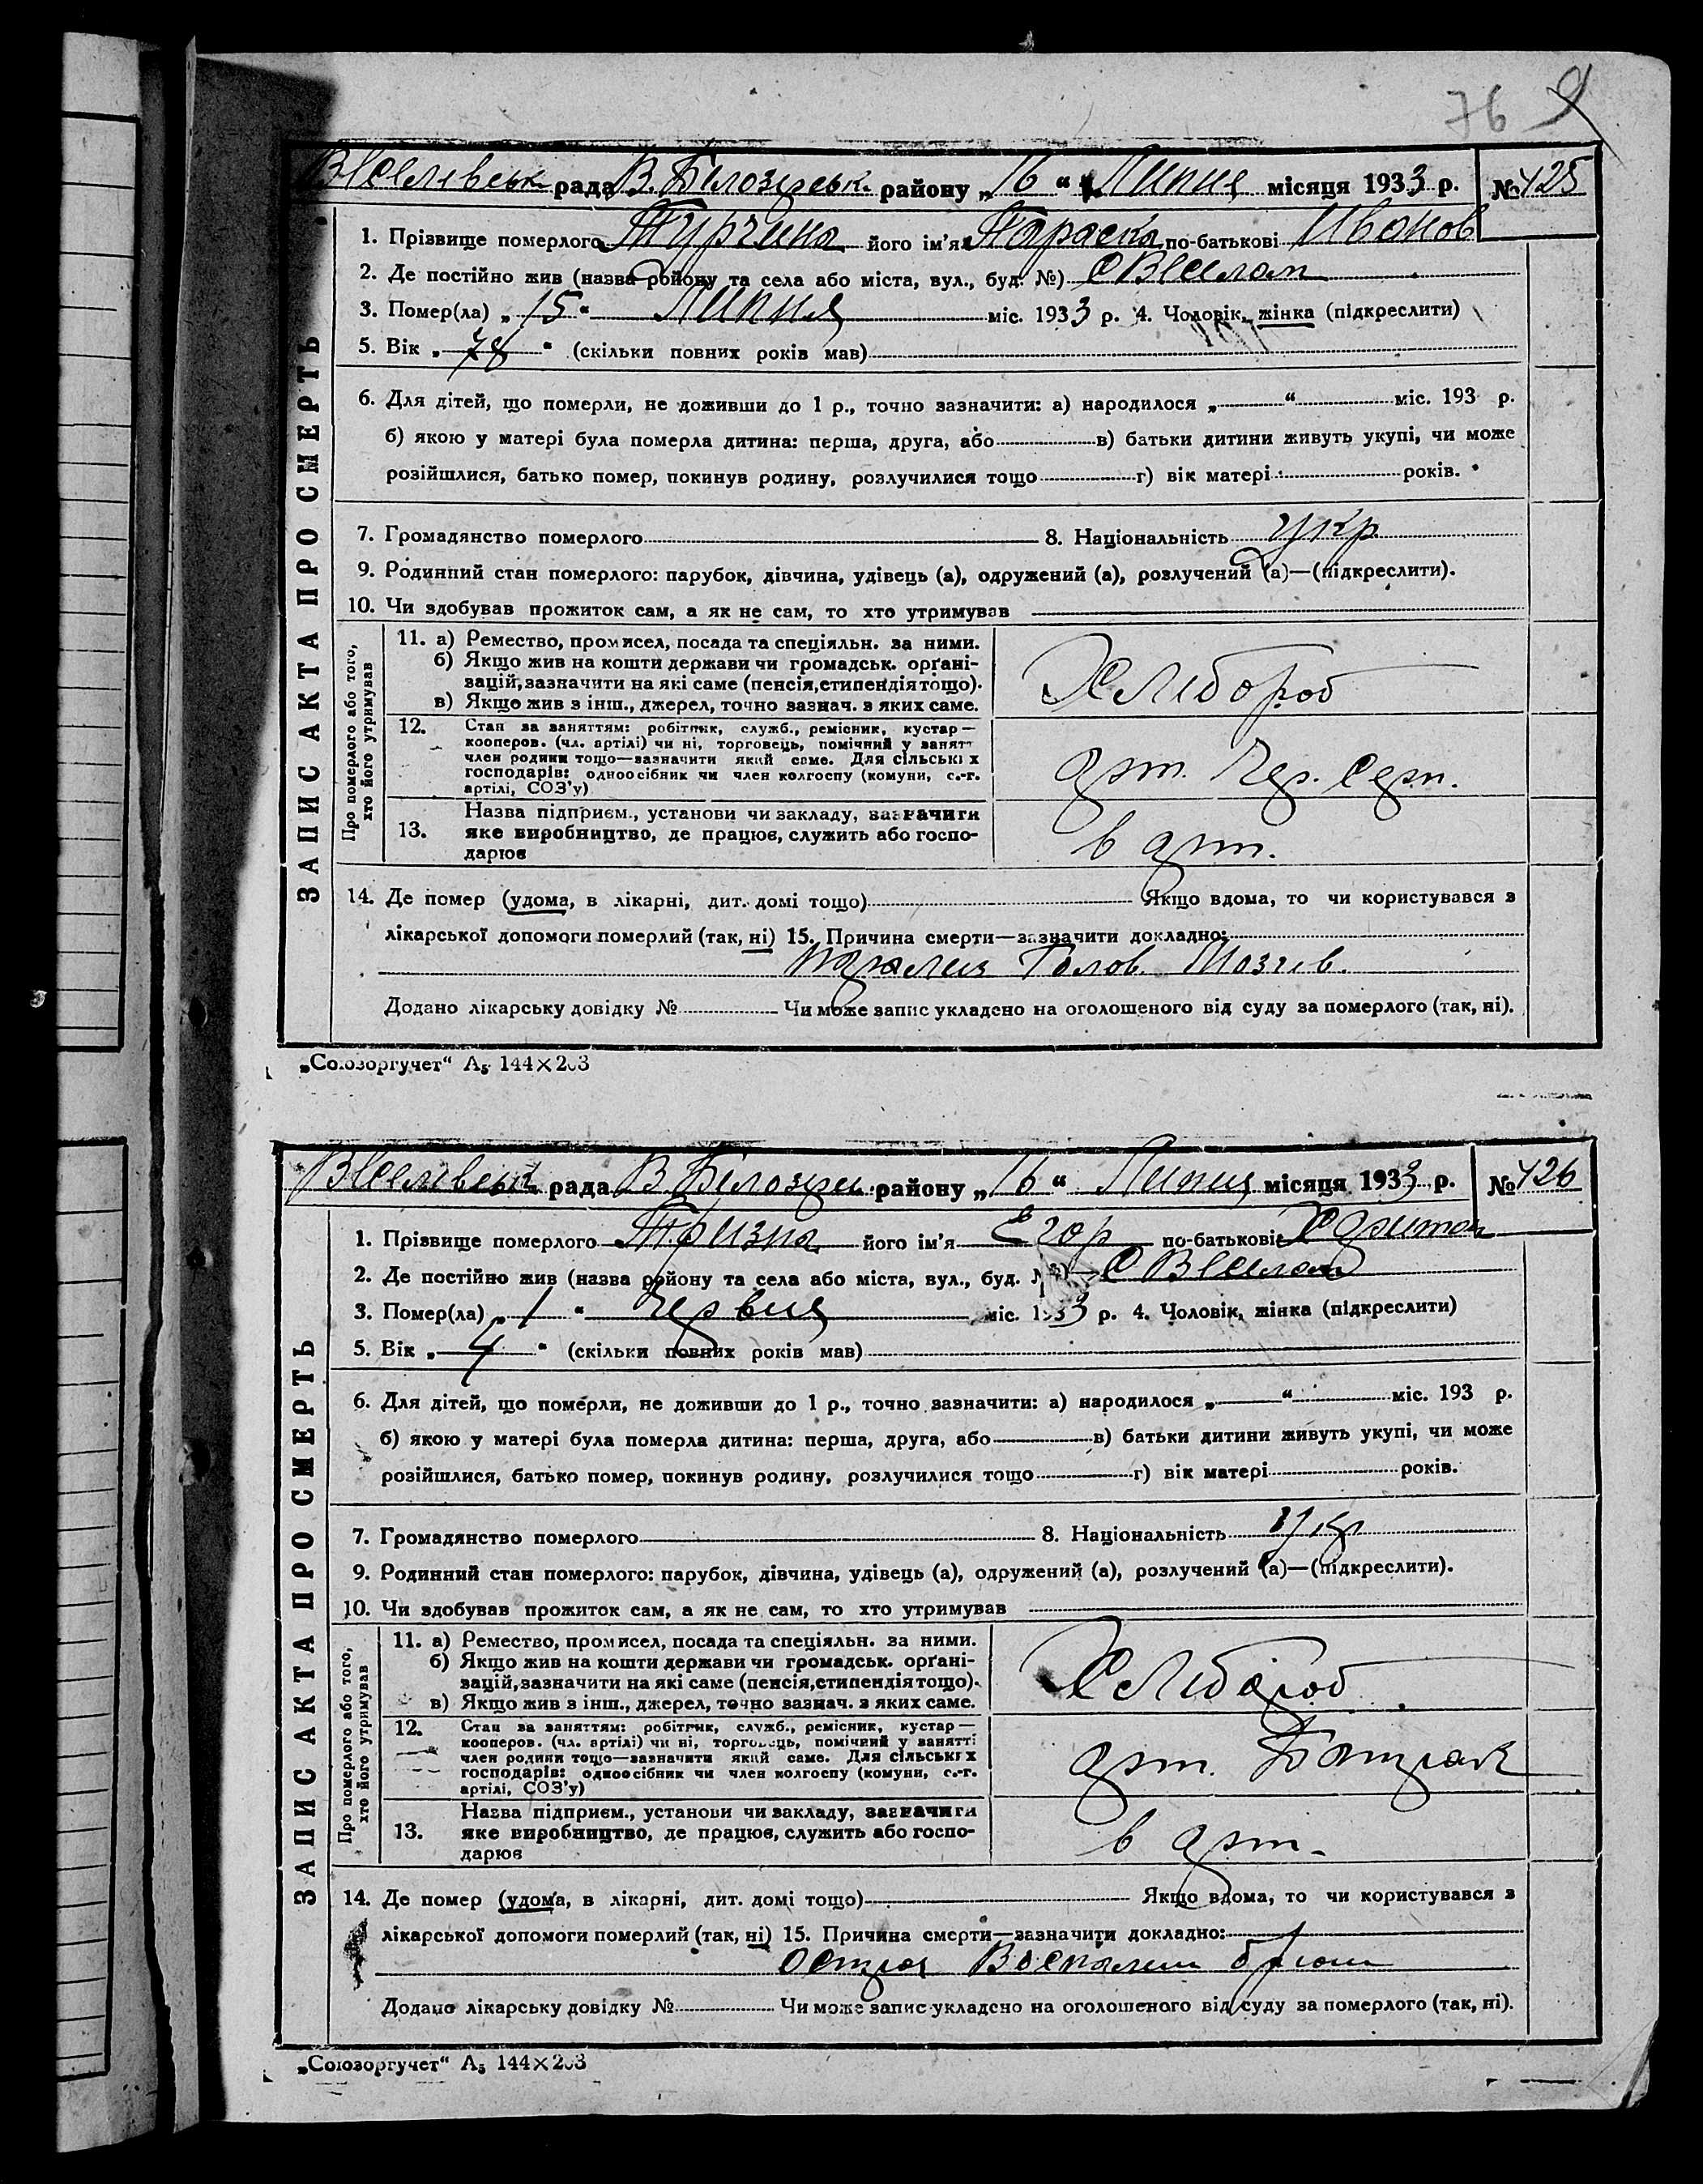 76 9
рада В. Білозерськ. району „16“ Липня місяця 1933 р. № 425
1. Прізвище померлого Турчина його ім'я Параска по-батькові Иванов
2. Де постійно жив (назва району та села або міста, вул., буд. №) с
3. Помер(ла) „15“ Липня міс. 1933 р. 4. Чоловік, жінка (підкреслити)
5. Вік „78“ (скільки повних років мав)
6. Для дітей, що померли, не доживши до 1 р., точно зазначити: а) народилося „ “ міс. 193 р.
б) якою у матері була померла дитина: перша, друга, або в) батьки дитини живуть укупі, чи може
розійшлися, батько помер, покинув родину, розлучилися тощо г) вік матері років.
7. Громадянство померлого 8. Національність укр.
9. Родинний стан померлого: парубок, дівчина, удівець (а), одружений (а), розлучений (а)—(підкреслити).
10. Чи здобував прожиток сам, а як не сам, то хто утримував
ЗАПИС АКТА ПРО СМЕРТЬ
Про померлого або того,
хто його утримував
11. а) Ремество, промисел, посада та спеціяльн. за ними.
б) Якщо жив на кошти держави чи громадськ. орґані-
зацій, зазначити на які саме (пенсія, стипендія тощо).
в) Якщо жив з інш., джерел, точно зазнач. з яких саме.
Хлібороб
12. Стан за заняттям: робітник, служб., ремісник, кустар—
кооперов. (чл. артілі) чи ні, торговець, помічний у занятті
член родини тощо—зазначити який саме. Для сільських
господарів: одноосібник чи член колгоспу (комуни, с.-г.
артілі, СОЗ'у)
арт. Чер.
13. Назва підприєм., установи чи закладу, зазначити
яке виробництво, де працює, служить або госпо-
дарює
в арт.
14. Де помер (удома, в лікарні, дит. домі тощо) Якщо вдома, то чи користувався з
лікарської допомоги померлий (так, ні) 15. Причина смерти—зазначити докладно:
Паралич Голов. Мозгив.
Додано лікарську довідку № Чи може запис укладено на оголошеного від суду за померлого (так, ні).
„Союзоргучет“ А₅ 144×203
рада В Білозер. району „16“ Липня місяця 1933 р. № 426
1. Прізвище померлого Тризна його ім'я Егор по-батькові Харитон
2. Де постійно жив (назва району та села або міста, вул., буд. №) с
3. Помер(ла) „1“ Червня міс. 1933 р. 4. Чоловік, жінка (підкреслити)
5. Вік „4“ (скільки повних років мав)
6. Для дітей, що померли, не доживши до 1 р., точно зазначити: а) народилося „ “ міс. 193 р.
б) якою у матері була померла дитина: перша, друга, або в) батьки дитини живуть укупі, чи може
розійшлися, батько помер, покинув родину, розлучилися тощо г) вік матері років.
7. Громадянство померлого 8. Національність Укр
9. Родинний стан померлого: парубок, дівчина, удівець (а), одружений (а), розлучений (а)—(підкреслити).
10. Чи здобував прожиток сам, а як не сам, то хто утримував
ЗАПИС АКТА ПРО СМЕРТЬ
Про померлого або того,
хто його утримував
11. а) Ремество, промисел, посада та спеціяльн. за ними.
б) Якщо жив на кошти держави чи громадськ. орґані-
зацій, зазначити на які саме (пенсія, стипендія тощо).
в) Якщо жив з інш., джерел, точно зазнач. з яких саме.
Хлібороб
12. Стан за заняттям: робітник, служб., ремісник, кустар—
кооперов. (чл. артілі) чи ні, торговець, помічний у занятті
член родини тощо—зазначити який саме. Для сільських
господарів: одноосібник чи член колгоспу (комуни, с.-г.
артілі, СОЗ'у)
арт. Батрак
13. Назва підприєм., установи чи закладу, зазначити
яке виробництво, де працює, служить або госпо-
дарює
в арт.
14. Де помер (удома, в лікарні, дит. домі тощо) Якщо вдома, то чи користувався з
лікарської допомоги померлий (так, ні) 15. Причина смерти—зазначити докладно:
Острая Воспалени
Додано лікарську довідку № Чи може запис укладено на оголошеного від суду за померлого (так, ні).
„Союзоргучет“ А₅ 144×203